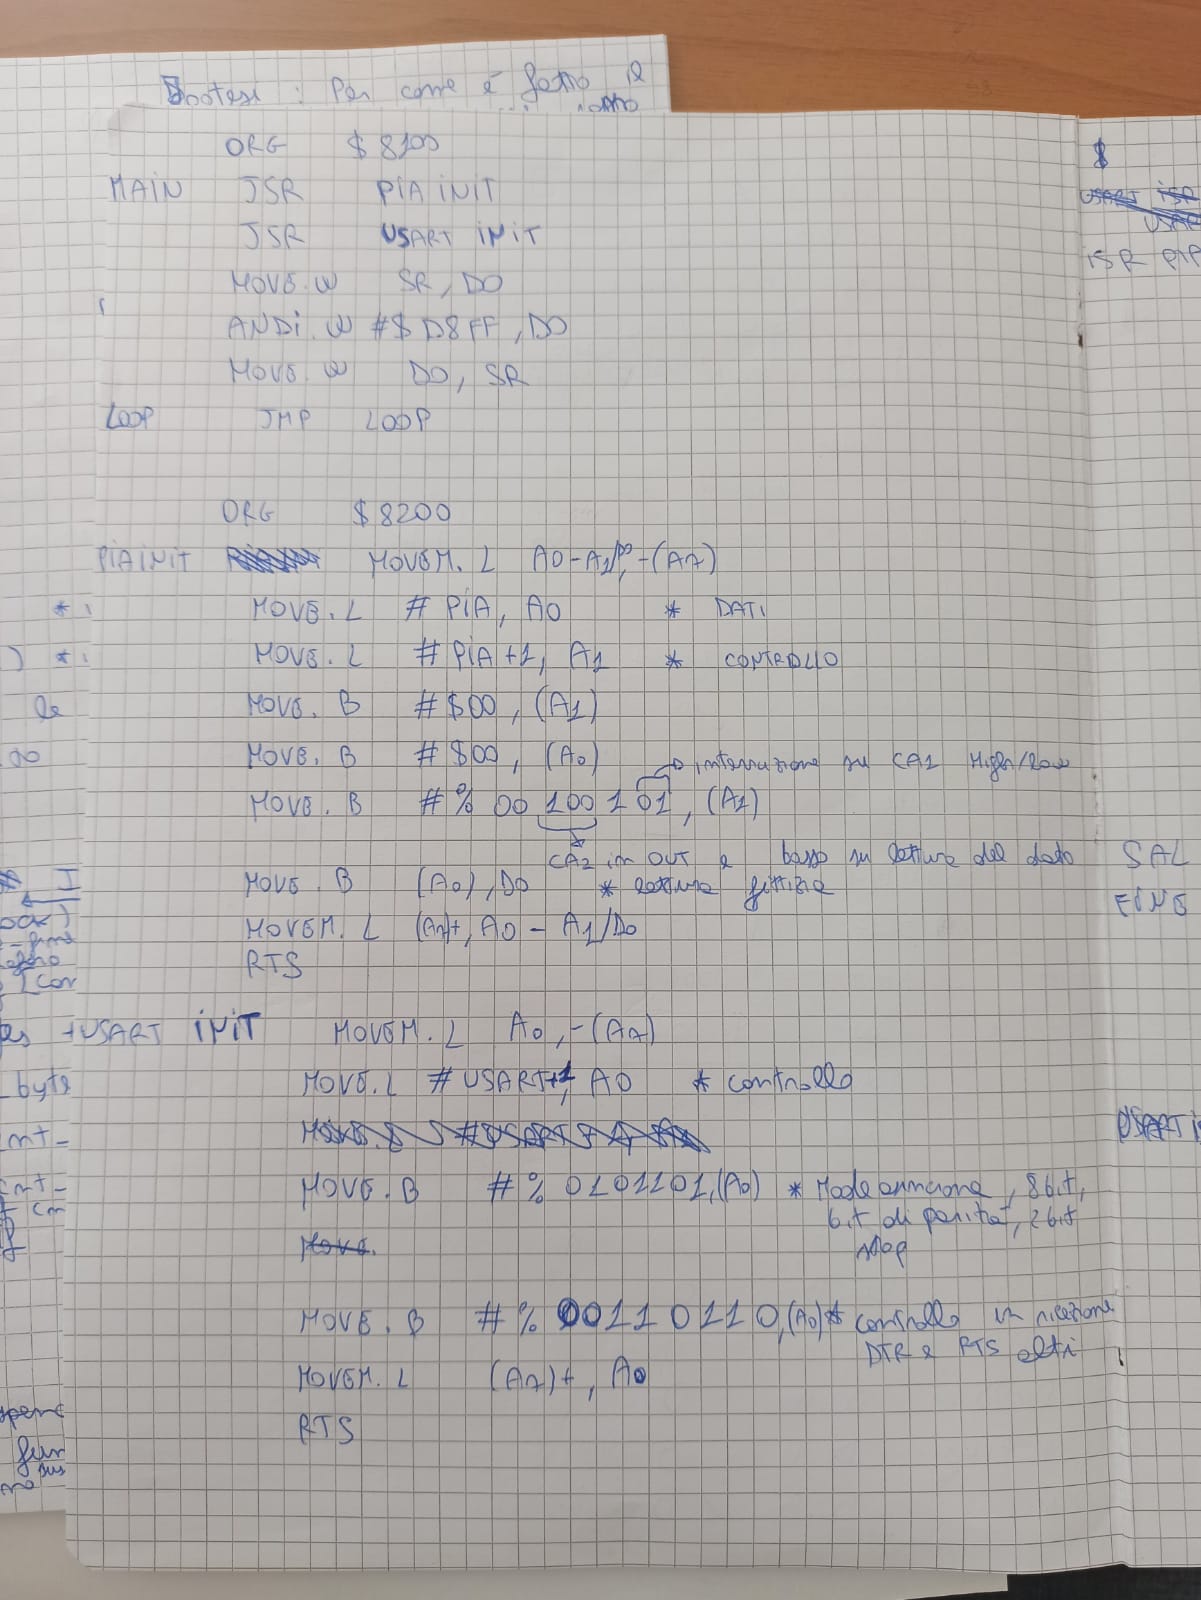 Ipotesi : Per come è fatto il
ORG $ 8100
MAIN JSR PIAINIT
JSR USART INIT
MOVE.W SR, D0
ANDI.W #$ D8FF, D0
MOVE.W D0, SR
LOOP JMP LOOP
ORG $8200
PIAINIT MOVEM.L A0-A1/D0, -(A7)
MOVE.L # PIA, A0 * DATI
MOVE.L # PIA+1, A1 * CONTROLLO
MOVE.B #$00, (A1)
MOVE.B #$00, (A0) interruzione su CA1 High/low
MOVE.B #% 00 100 1 01, (A1)
CA2 in OUT e basso su lettura del dato
MOVE.B (A0), D0 * lettura fittizia
MOVEM.L (A7)+, A0 - A1/D0
RTS
USART INIT MOVEM.L A0, -(A7)
MOVE.L # USART+1, A0 * controllo
MOVE.B #% 0101101, (A0) * Mode asincrona, 8bit,
bit di parità, 2bit
stop
Move.
MOVE.B #% 00110110, (A0) * controllo in ricezione
DTR e RTS alti
MOVEM.L (A7)+, A0
RTS
$
USART ISR
ISR
SAL
FINE
byte